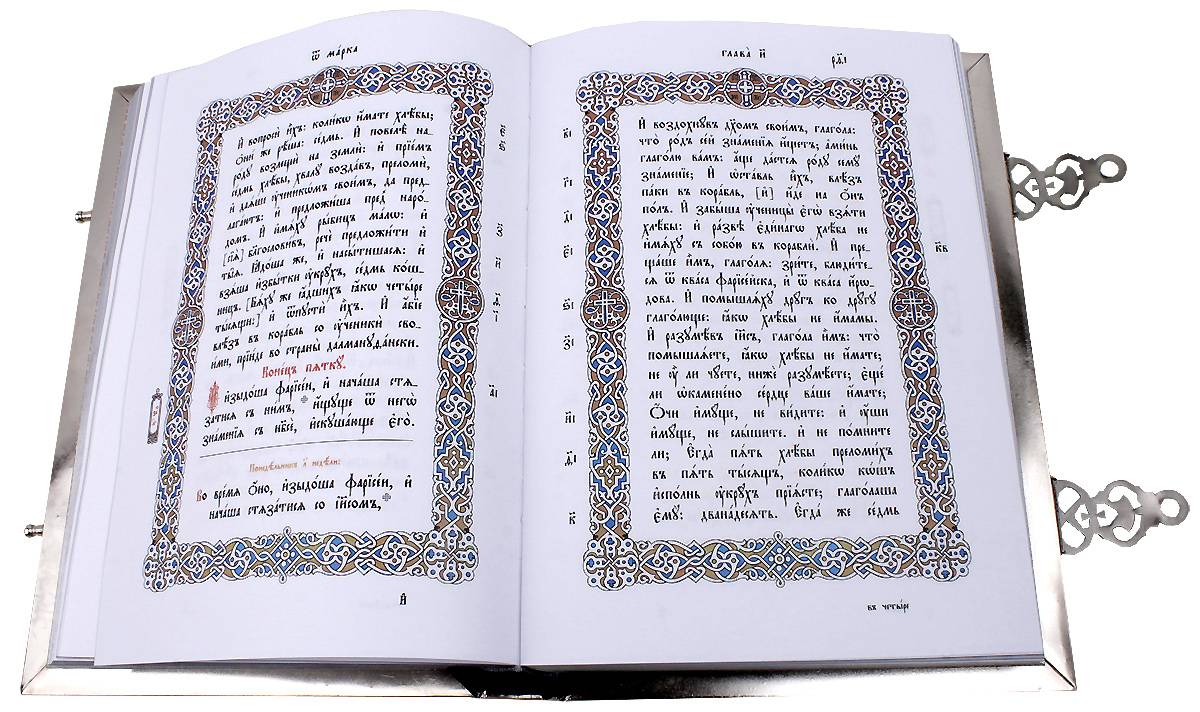 ѿ ма́рка
И҆ вопросѝ и҆̀хъ: коли́кѡ и҆́мате хлѣ́бы;
Ѻ҆ни́ же рѣ́ша: се́дмь. И҆ повелѣ̀ на-
ро́ду возлещѝ на землѝ: и҆ прїе́мъ
се́дмь хлѣ́бы, хвалꙋ̀ возда́въ, преломѝ,
и҆ даѧ́ше ᲂу҆ченикѡ́мъ свои̑мъ, да пред-
лага́ютъ: и҆ предложи́ша пред̾ наро́-
домъ. И҆ и҆мѧ́хꙋ ры̑бицъ ма́лѡ: и҆
[сїѧ̑] блг҃ослови́въ, речѐ предложи́ти и҆
ты̑ѧ. Ꙗ҆до́ша же, и҆ насы́тишасѧ: и҆
взѧ́ша и҆збы́тки ᲂу҆крꙋ̑хъ, се́дмь ко́ш-
ницъ. [Бѧ́хꙋ же ꙗ҆́дшихъ ꙗ҆́кѡ четы́ре
ты́сѧщи:] и҆ ѿпꙋстѝ и҆̀хъ. И҆ а҆́бїе
влѣ́зъ въ кора́бль со ᲂу҆ченикѝ свои́-
ими, прїи́де во страны̑ далманꙋда̑нски.
Коне́цъ пѧткꙋ̀.
И҆ и҆зыдо́ша фарїсе́є, и҆ нача́ша стѧ-
за́тисѧ съ ни́мъ, и҆́щꙋще ѿ негѡ̀
зна́менїѧ съ нб҃сѐ, и҆скꙋша́юще є҆го̀.
Понедѣ́льникъ л҃ недѣ́ли:
Во вре́мѧ ѻ҆́но, и҆зыдо́ша фарїсе́є, и҆
нача́ша стѧза́тисѧ со і҆и҃сомъ,
И҆
глава̀ и҃
рд҃і
И҆ воздохнꙋ́въ дх҃омъ свои́мъ, глаго́ла:
что̀ ро́дъ се́й зна́менїѧ и҆́щетъ; а҆ми́нь
глаго́лю ва́мъ: а҆́ще да́стсѧ ро́дꙋ семꙋ̀
зна́менїе; И҆ ѡ҆ста́вль и҆̀хъ, влѣ́зъ
па́ки въ кора́бль, [и҆] и҆́де на ѻ҆́нъ
по́лъ. И҆ забы́ша ᲂу҆чн҃цы̀ є҆гѡ̀ взѧ́ти
хлѣ́бы: и҆ ра́звѣ є҆ди́нагѡ хлѣ́ба не
и҆мѧ́хꙋ съ собо́ю въ кораблѝ. И҆ пре-
ща́ше и҆̀мъ, глаго́лѧ: зри́те, блюди́те-
сѧ ѿ ква́са фарїсе́йска, и҆ ѿ ква́са и҆́рѡ-
дова. И҆ помышлѧ́хꙋ дрꙋ́гъ ко дрꙋ́гꙋ
глаго́люще: ꙗ҆́кѡ хлѣ́бы не и҆́мамы.
И҆ разꙋмѣ́въ і҆и҃съ, глаго́ла и҆̀мъ: что̀
помышлѧ́ете, ꙗ҆́кѡ хлѣ́бы не и҆́мате;
не ᲂу҆̀ ли чꙋ́ете, нижѐ разꙋмѣ́ете; є҆ще́
ли ѡ҆ка́менено се́рдце ва́ше и҆́мате;
Ѻ҆́чи и҆мꙋ́ще, не ви́дите: и҆ ᲂу҆́шы
и҆мꙋ́ще, не слы́шите. и҆ не по́мните
ли; Е҆гда̀ пѧ́ть хлѣ́бы преломи́хъ
въ пѧ́ть ты́сѧщъ, коли́кѡ ко́шъ
и҆спо́лнь ᲂу҆крꙋ̑хъ прїѧ́сте; глаго́лаша
є҆мꙋ̀: двана́десѧть. Е҆гда́ же се́дмь
въ четы́ре